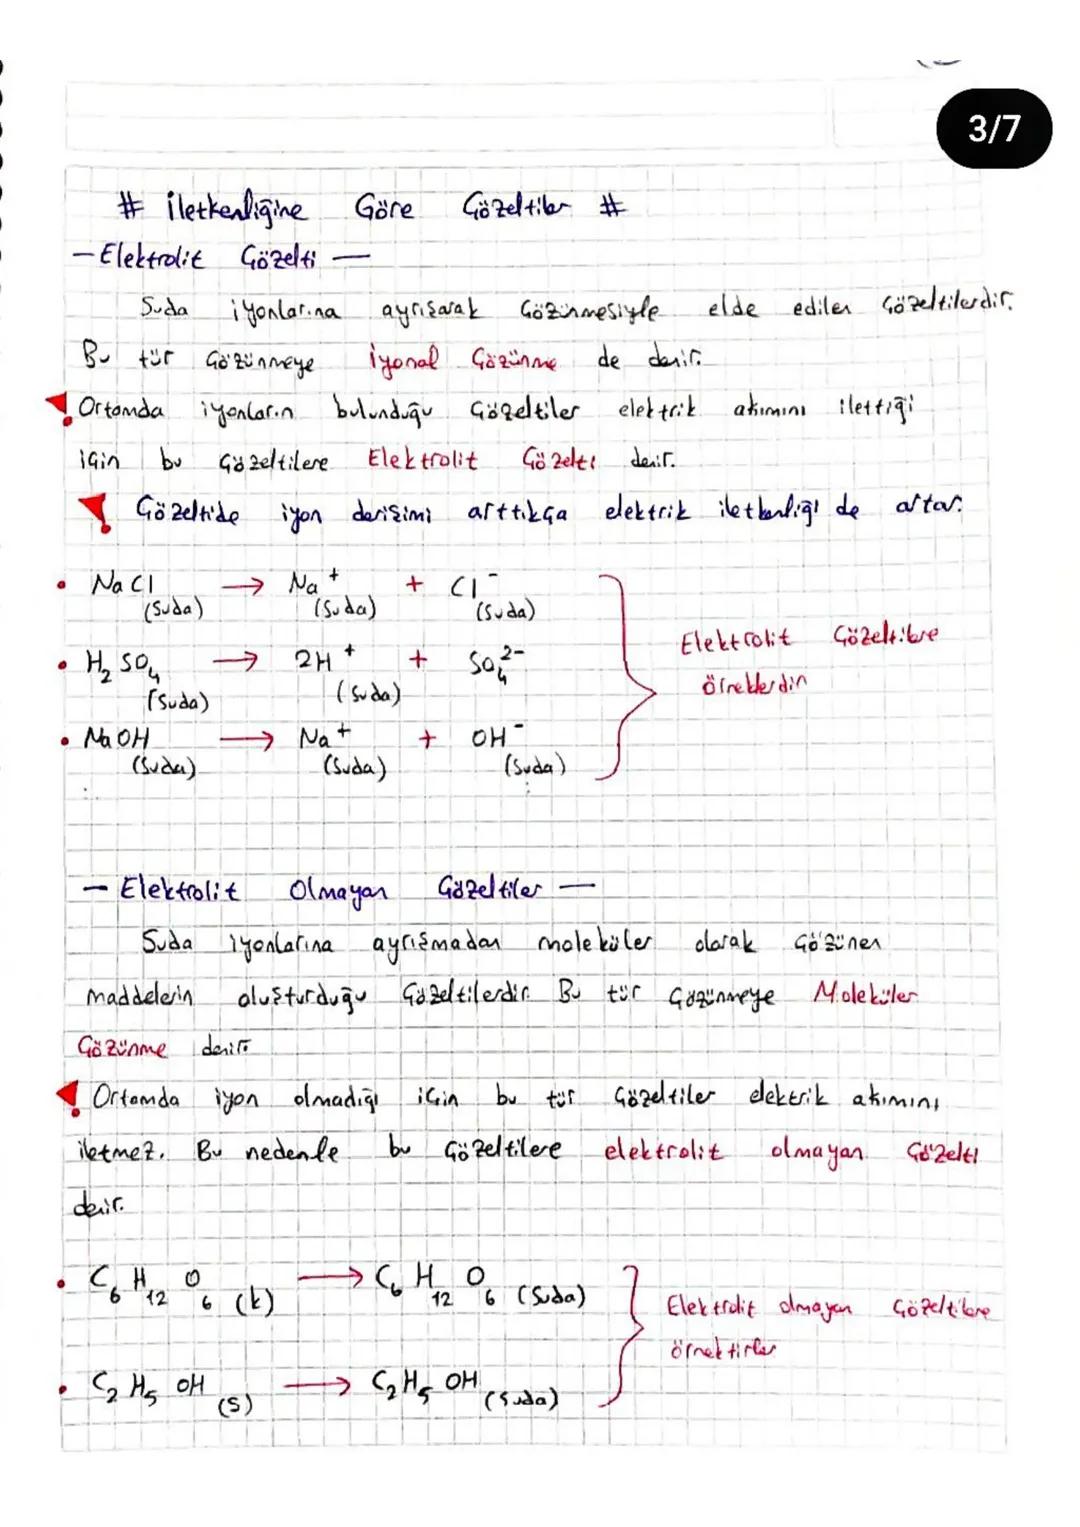 3/7
# İletkenliğine Göre Çözeltiler #
— Elektrolit Çözelti —
Suda iyonlarına ayrışarak çözünmesiyle elde edilen çözeltilerdir.
Bu tür çözünmeye İyonal Çözünme de denir.
Ortamda iyonların bulunduğu çözeltiler elektrik akımını ilettiği
için bu çözeltilere Elektrolit Çözelti denir.
Çözeltide iyon derişimi arttıkça elektrik iletkenliği de artar.
• NaCl (Suda) → Na⁺ (Suda) + Cl⁻ (Suda)
• H₂SO₄ (Suda) → 2H⁺ (Suda) + SO₄²⁻
• NaOH (Suda) → Na⁺ (Suda) + OH⁻ (Suda)
Elektrolit Çözeltilere
örneklerdir
— Elektrolit Olmayan Çözeltiler —
Suda iyonlarına ayrışmadan moleküler olarak çözünen
maddelerin oluşturduğu çözeltilerdir. Bu tür çözünmeye Moleküler
Çözünme denir
Ortamda iyon olmadığı için bu tür çözeltiler elektrik akımını
iletmez. Bu nedenle bu çözeltilere elektrolit olmayan çözelti
denir.
• C₆H₁₂O₆ (k) → C₆H₁₂O₆ (Suda)
• C₂H₅OH (s) → C₂H₅OH (Suda)
Elektrolit olmayan çözeltilere
örnektirler